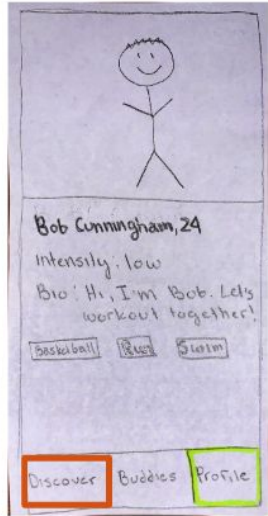 Bob Cunningham, 24
Intensity: low
Bio: Hi, I'm Bob. Let's
workout together!
Basketball Run Swim
Discover Buddies Profile